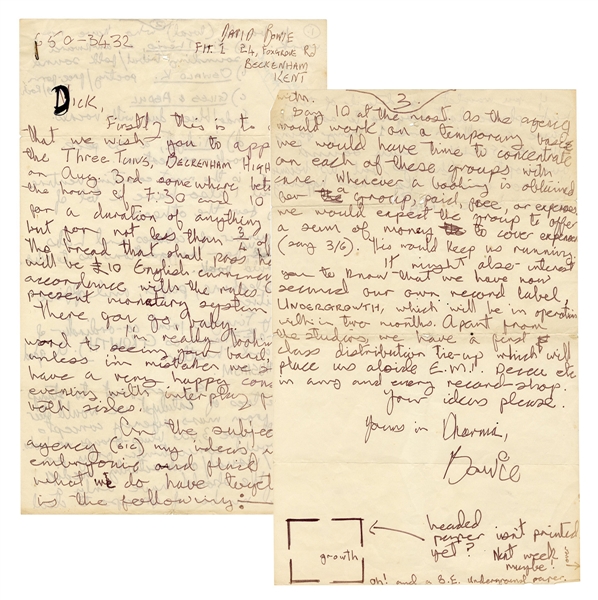 650-3432
DAVID BOWIE
Flt. 1 24, FOXGROVE Rd
BECKENHAM
KENT
DICK,
Firstly this is to
that we wish you to app
the THREE TUNS, BECKENHAM HIGH
on Aug. 3rd somewhere bet
the hours of 7.30 and 10
for a duration of anything
but for not less than 3/4 of
The bread that shall pass
will be £10 English currency
accordance with the rules
present monetary system
There you go baby.
I'm really looking
ward to seeing your band
unless im mistaken we
have a very happy cons
evening with interplay
both sides.
On the subject
agency (sic) my ideas,
embryonic and fluid
what we do have toget
is the following:
3.
with.
Say 10 at the most. As the agency
would work on a temporary basis
we would have time to concentrate
on each of these groups with
care. Whenever a booking is obtained
for a group, paid, free, or expenses
we would expect the group to offer
a sum of money to cover expenses
(say 3/6). This would keep us running.
It might also interest
you to know that we have now
secured our own record label,
UNDERGROWTH, which will be in operation
within two months. Apart from
the studios we have a first
class distribution tie-up which will
place us aloside E.M.I. Decca etc
in any and every record shop.
Your ideas please.
Yours in Dharma,
Bowie
growth
headed
paper isn't printed
yet? Next week
maybe!
oh! and a B.E. Underground paper.